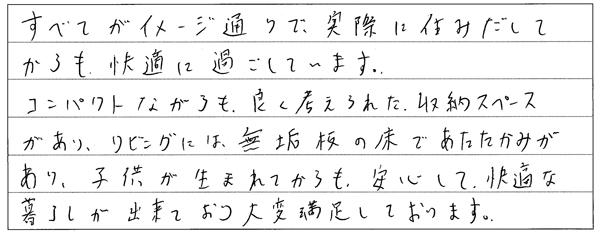 すべてがイメージ通りで、実際に住みだして
からも、快適に過ごしています。
コンパクトながらも、良く考えられた、収納スペース
があり、リビングには、無垢板の床であたたかみが
あり、子供が生まれてからも、安心して、快適な
暮らしが出来ており大変満足しております。